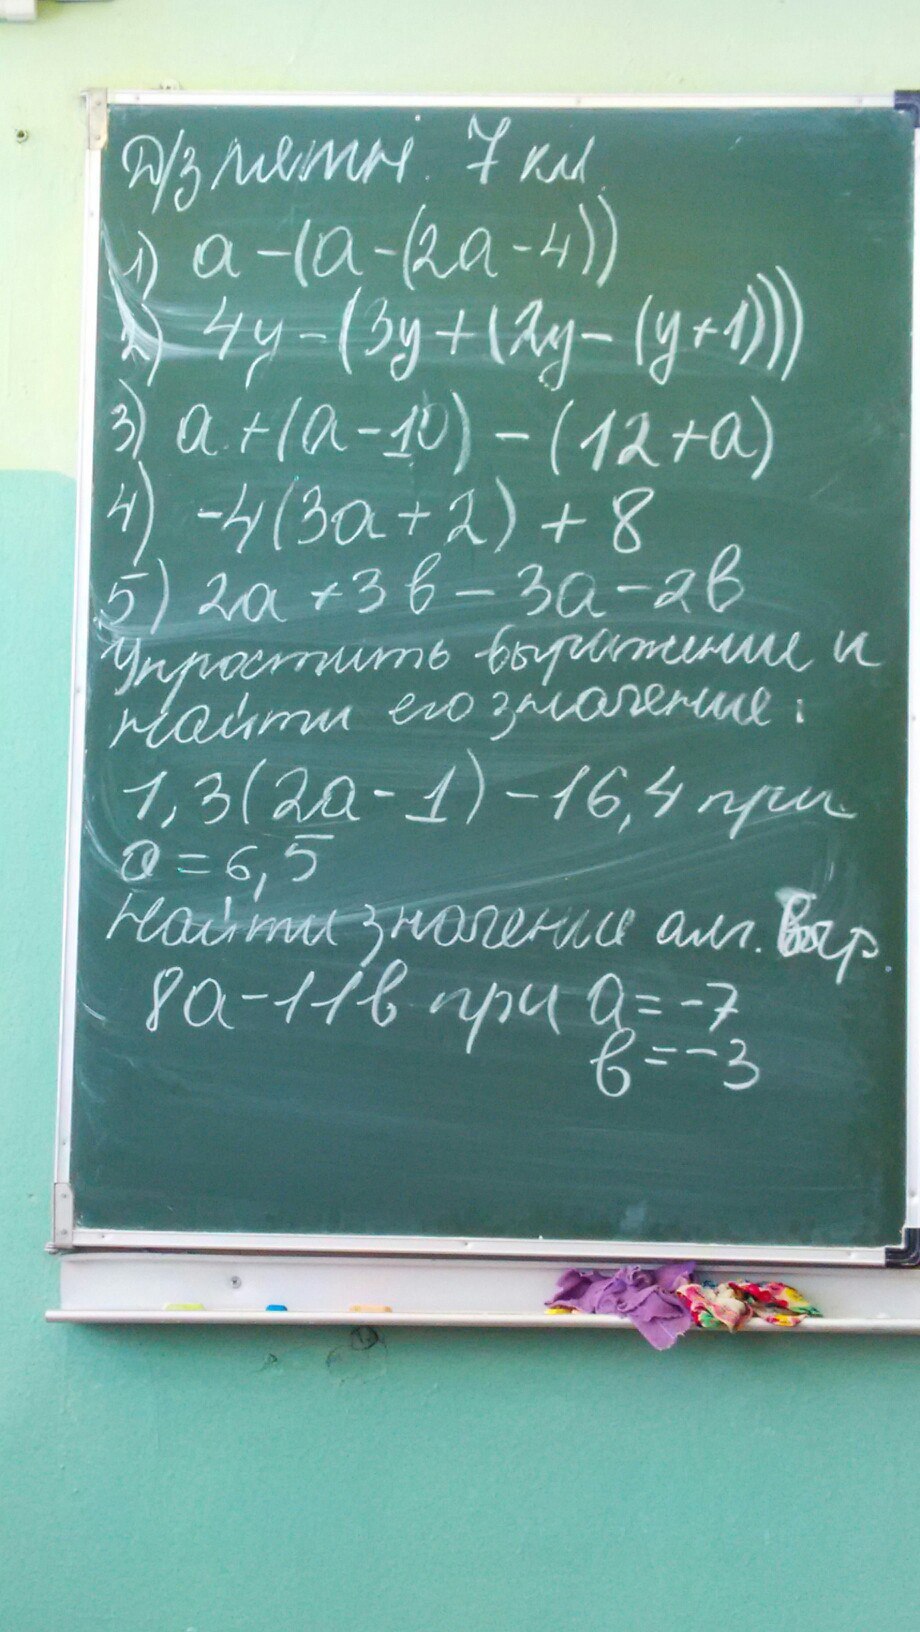 Д/з летн. 7 кл.
1) a-(a-(2a-4))
2) 4y-(3y+(2y-(y+1)))
3) a+(a-10)-(12+a)
4) -4(3a+2)+8
5) 2a+3в-3a-2в
Упростить выражение и
найти его значение:
1,3(2a-1)-16,4 при
a=6,5
Найти значение алг. выр.
8a-11в при a=-7
в=-3